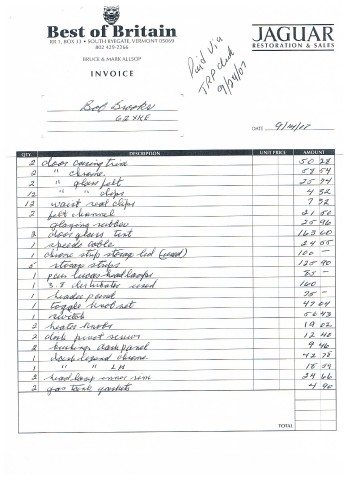 Best of Britain
RR 1, BOX 33 • SOUTH RYEGATE, VERMONT 05069
802 429-2266
BRUCE & MARK ALLSOP
INVOICE
JAGUAR
RESTORATION & SALES
Paid Via
TRP check
9/24/07
Bob Brooks
62 XKE
DATE 9/14/07
QTY. DESCRIPTION UNIT PRICE AMOUNT
2 door casing trim 50 28
2 " chrome 54
2 " glass felt 25
12 " clips 4 32
12 waist seal clips 7 32
2 felt channel 21 50
glazing rubber 25 96
2 door glass tint 163 60
1 speedo cable 24 05
1 chrome strip storage lid (used) 100 —
5 storage strips 125 90
1 pair lucas headlamps 85 —
1 3.8 distributor used 160
1 radio panel 75 —
1 toggle knob set 47 64
1 switch 56 43
2 heater knobs 19 02
2 dash pivot screws 12 40
2 bushings dash panel 9 46
1 dash legend chrome 42 78
1 " " LH 18
2 headlamp inner rim 24 66
2 gas tank gaskets 4 90
TOTAL